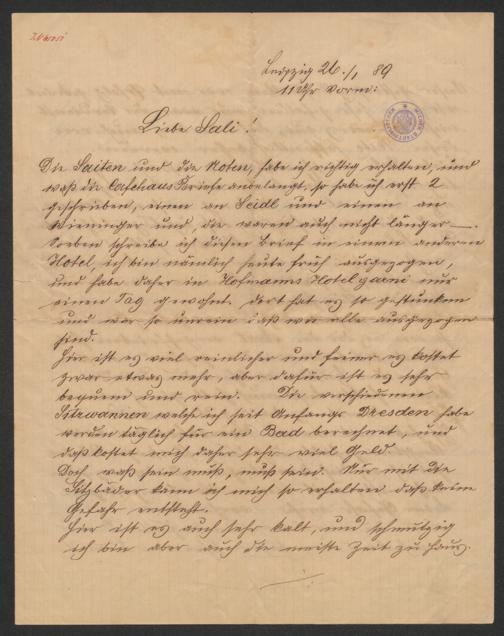 Leipzig 26./1 89
11 Uhr Vorm:
Liebe Sali!
Die Saiten und die Noten, habe ich richtig erhalten, und
waß die Cafehaus Briefe anbelangt, so habe ich erst 2
geschrieben, einen an Seidl und einen an
Wieninger und, die waren auch nicht länger —.
Soeben schreibe ich diesen Brief in einem anderen
Hotel, ich bin nämlich heute früh ausgezogen,
und habe daher in Hofmanns Hotel garni nur
einen Tag gewohnt. Dort hat es so gestunken
und war so unrein daß wir alle ausgezogen
sind.
Hier ist es viel reinlicher und feiner es kostet
zwar etwas mehr, aber dafür ist es sehr
bequem und rein. Die verschiedenen
Sitzwannen welche ich seit Anfangs Dresden habe
werden täglich für ein Bad berechnet, und
daß kostet mich daher sehr viel Geld.
Doch waß sein muß, muß sein. Nur mit die
Sitzbäder kann ich mich so erhalten daß keine
Gefahr entsteht.
Hier ist es auch sehr kalt, und schmutzig
ich bin aber auch die meiste Zeit zu Haus.